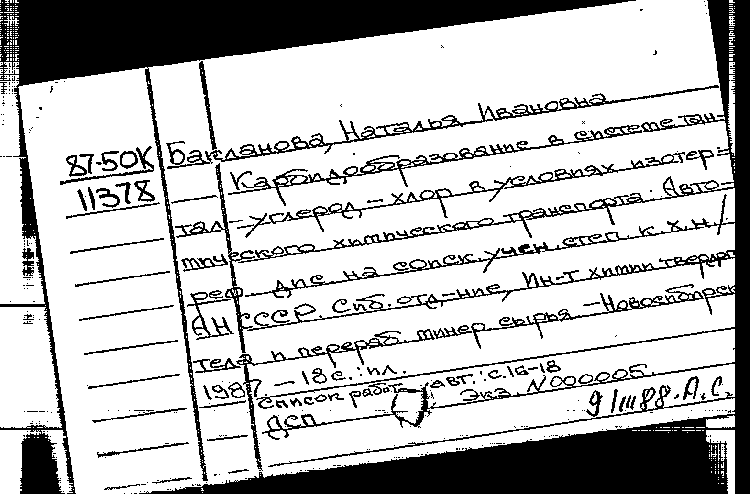 87-50К
11378
Бакланова, Наталья Ивановна
Карбидообразование в системе тан-
тал-углерод-хлор в условиях изотер-
мического химического транспорта: Авто-
реф. дис. на соиск. учен. степ. к.х.н./
АН СССР. Сиб. отд-ние, Ин-т химии тверд.
тела и перераб. минер. сырья. -Новосибирск
1987. - 18 с.: ил.
Список работ авт.: с.16-18
ДСП Экз. N000005.
9/III88. А.С.